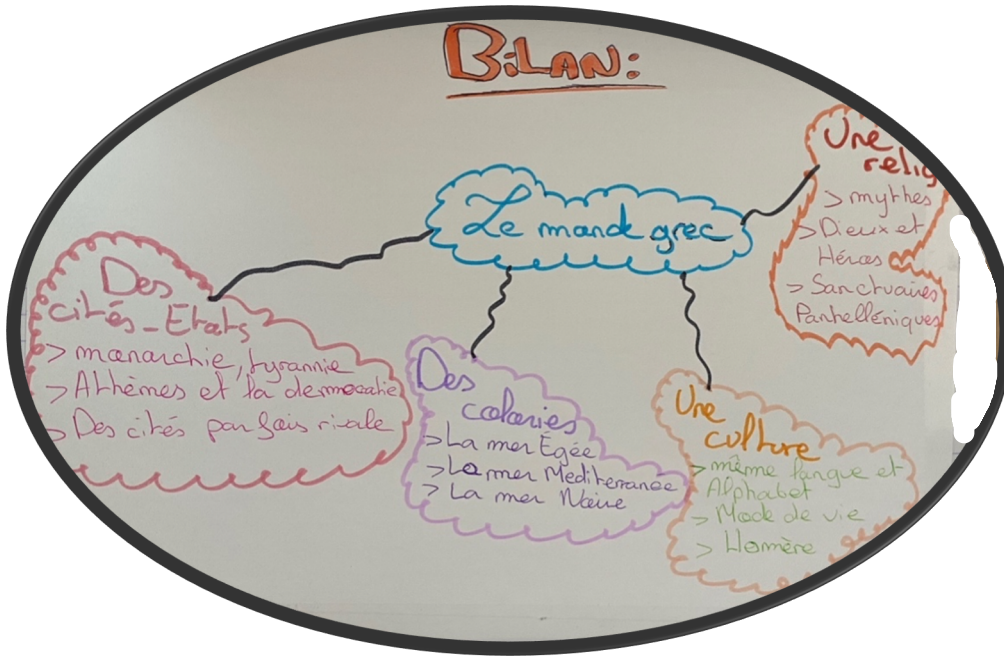 BiLAN:
Le monde grec
Des
cités-Etats
> monarchie, tyrannie
> Athènes et la democratie
> Des cités parfois rivale
Des
colonies
> La mer Égée
> La mer Mediterranée
> La mer Noire
Une
culture
> même langue et
Alphabet
> Mode de vie
> Homère
Une
relig
> mythes
> Dieux et
Héros
> Sanctuaires
Panhelléniques